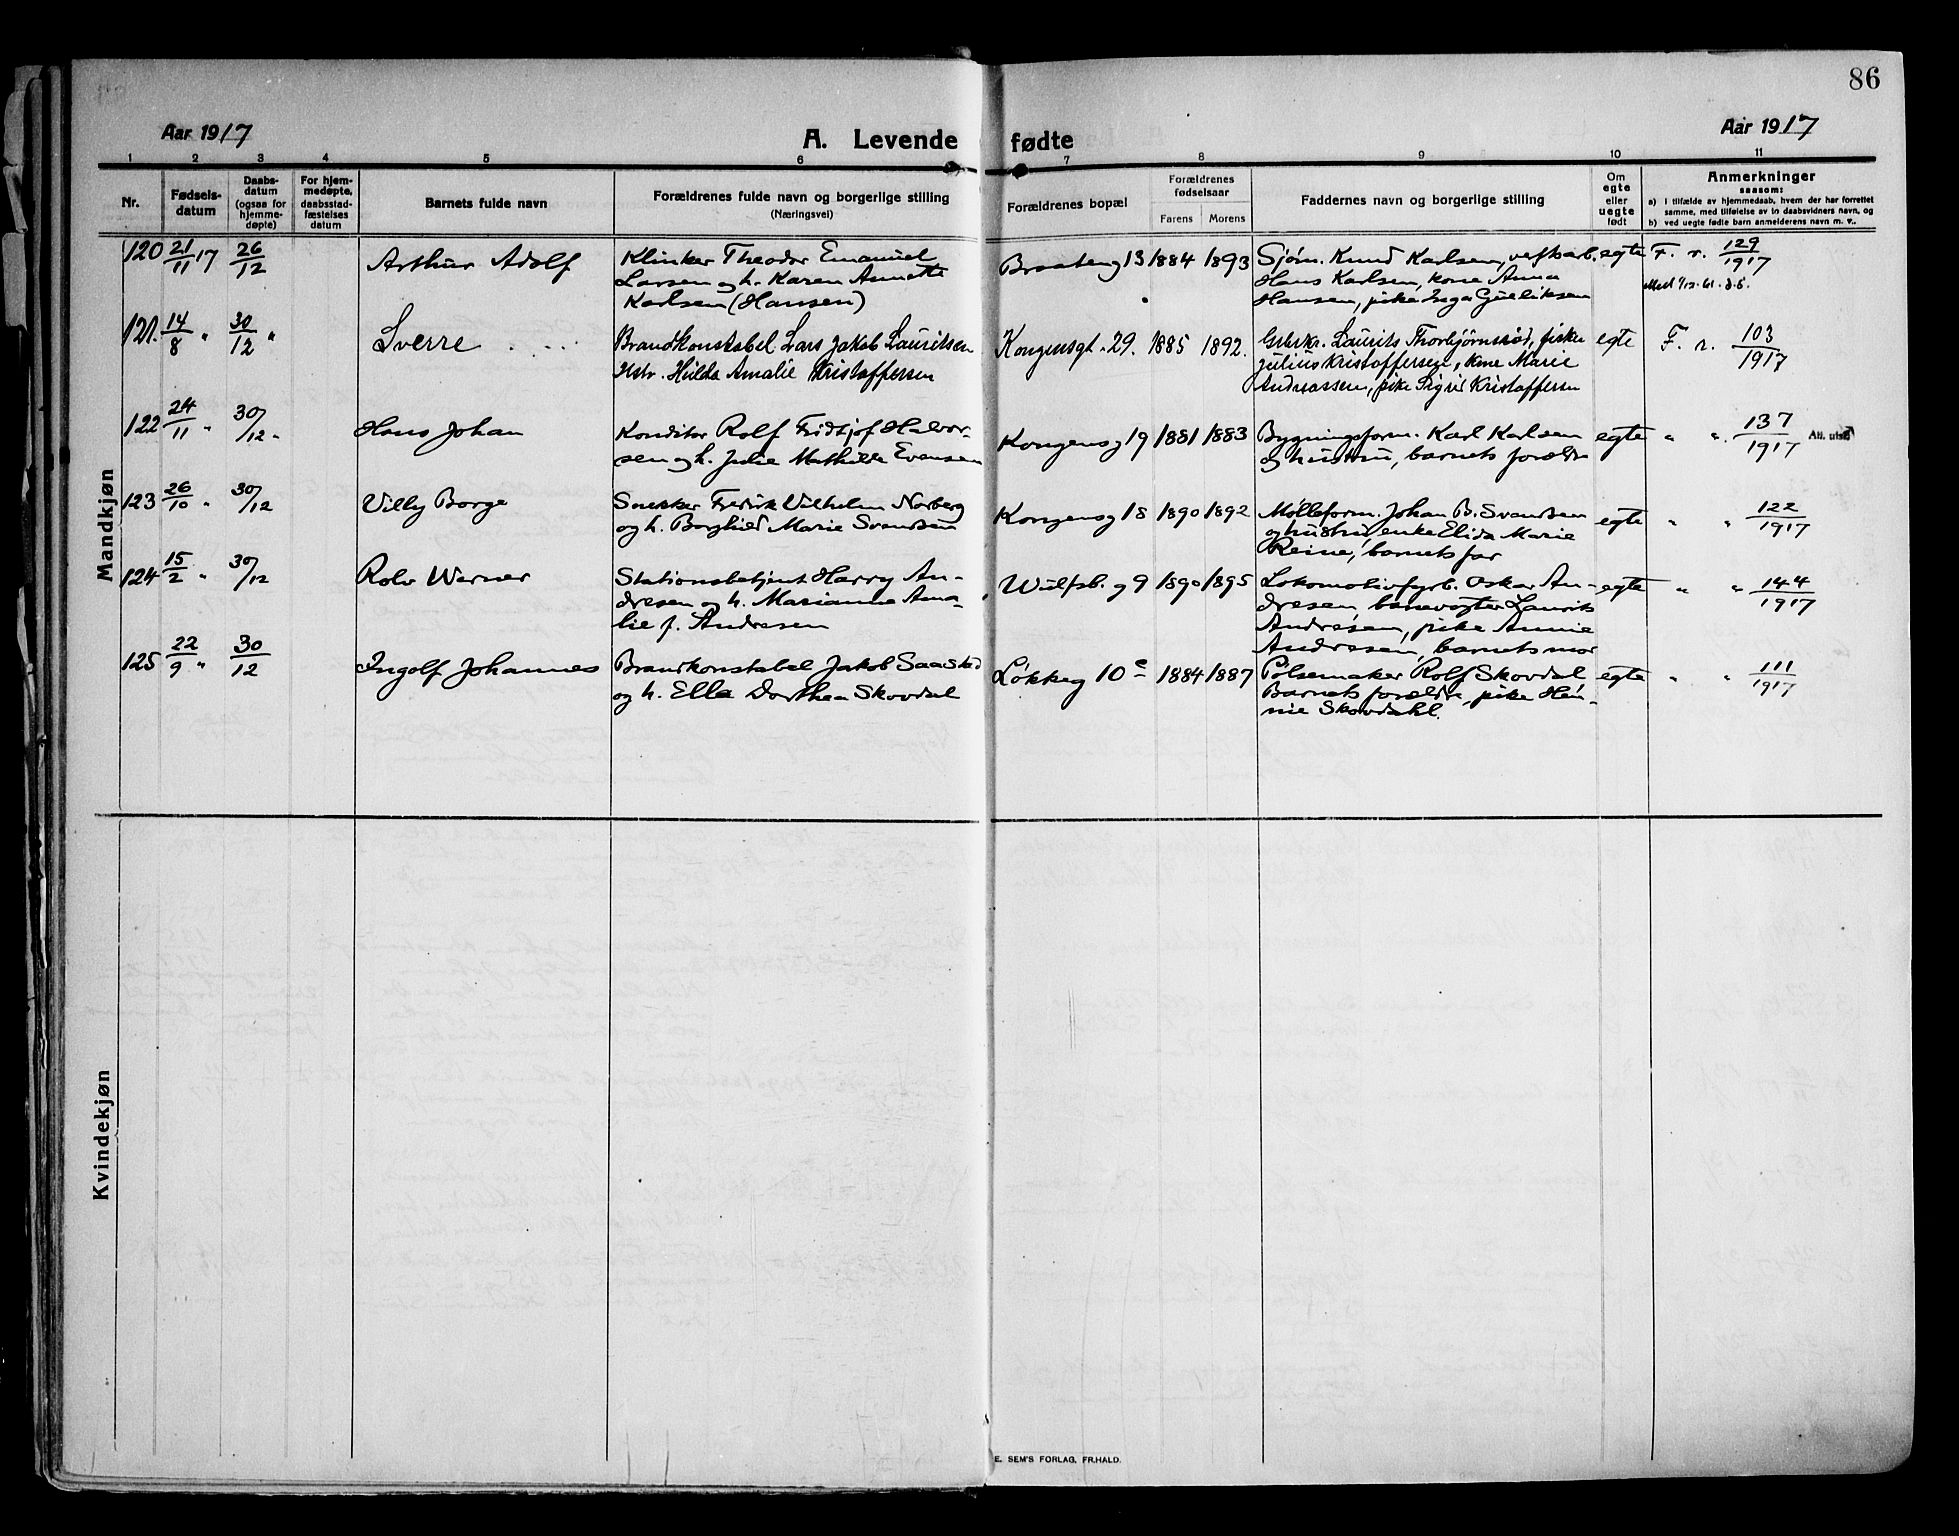 86
Aar 1917
A. Levende fødte
Aar 1917
1 2 3 4 5 6 7 8 9 10 11
Nr.
Fødsels-
datum
Daabs-
datum
(ogsaa for
hjemme-
døpte)
For hjem-
medøpte,
daabsstad-
fæstelses
datum
Barnets fulde navn
Forældrenes fulde navn og borgerlige stilling
(Næringsvei)
Forældrenes bopæl
Forældrenes
fødselsaar
Farens Morens
Faddernes navn og borgerlige stilling
Om
egte
eller
uegte
født
Anmerkninger
saasom:
a) i tilfælde av hjemmedaab, hvem der har forrettet
samme, med tilføielse av to daabsvidners navn, og
b) ved uegte fødte barn anmelderens navn m. v..
Mandkjøn
120 21/11 17 26/12
Arthur Adolf
Klinker Theodor Emanuel
Larsen og h. Karen Annette
Karlsen (Hansen)
Braateng 13 1884 1893
Sjøm. Knud Karlsen, verftsarb.
Hans Karlsen, kone Anna
Hansen, pike Inga Gulliksen
egte F. r. 129/1917
121. 14/8 " 30/12 "
Sverre
Brandkonstabel Lars Jakob Lauritsen
Hstr. Hulda Amalie Kristoffersen
Kongensgt. 29. 1885 1892.
Laurits Thorbjørnsrød, fisker
Julius Kristoffersen, kone Marie
Andreassen, pike Sigrid Kristoffersen
egte F. r. 103/1917
122 24/11 " 30/12 "
Hans Johan
Konditor Rolf Fridtjof Halvor-
sen og h. Julie Mathilde Evensen
Kongensg 19 1881 1883
Bygningsform. Karl Karlsen
og hustru, barnets forældre
egte " " 137/1917 Att. utst
123 26/10 " 30/12
Villy Borge
Snekker Fredrik Vilhelm Norberg
og h. Borghild Marie Svendsen
Kongensg 18 1890 1892
Mølleform. Johan B. Svendsen
og hustru, enke Elida Marie
Reine, barnets far
egte " " 122/1917
124 15/2 " 30/12
Rolv Werner
Stationsbetjent Harry An-
dresen og h. Marianne Ama-
lie f. Andresen
Wulfsb. g 9 1890 1895
Lokomotivfyrb. Oskar An-
dresen, banevogter Laurits
Andresen, pike Annie
Andresen, barnets mor
egte " " 144/1917
125 22/9 " 30/12
Ingolf Johannes
Brandkonstabel Jakob Saastad
og h. Ella Dorthea Skovdal
Løkkeg 10 c 1884 1887
Pølsemaker Rolf Skovdal
Barnets forældre, pike Hen-
nie Skovdahl.
egte " " 111/1917
Kvindekjøn
E. SEM'S FORLAG, FR.HALD.